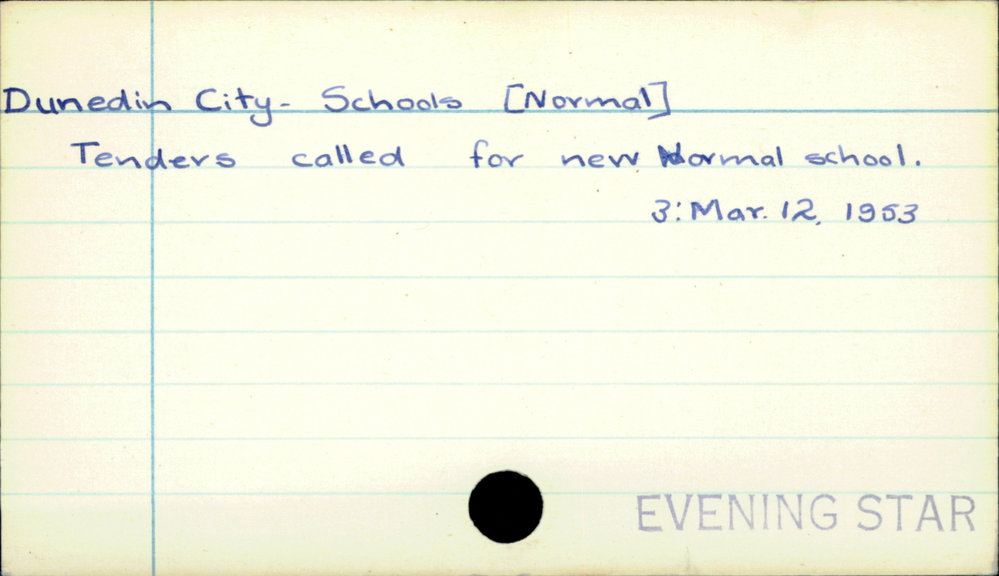 Dunedin City - Schools [Normal]
Tenders called for new Normal school.
3: Mar. 12, 1953
EVENING STAR